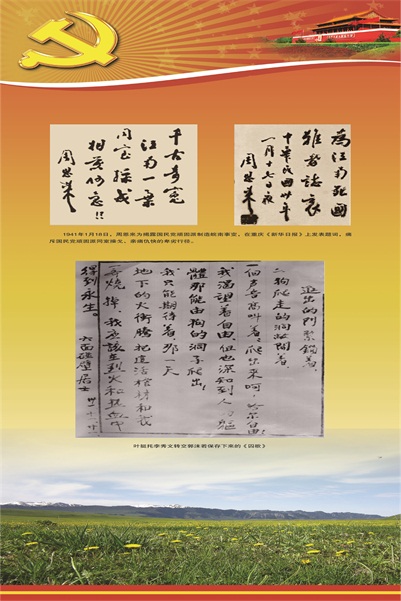 千古奇冤
江南一葉
同室操戈
相煎何急!!
周恩来
為江南死國
難者誌哀
中華民國卅年
一月十七日夜
周恩来
1941年1月18日，周恩来为揭露国民党顽固派制造皖南事变，在重庆《新华日报》上发表题词，痛
斥国民党顽固派同室操戈、亲痛仇快的卑劣行径。
進出的門緊鎖着，
狗爬走的洞敞開着，
一個聲音高叫着：爬出來呵，給尔自由！
我渴望着自由，但也深知到人的軀
體那能由狗的洞子爬出！
我只能期待着，那一天
地下的火衝騰把這活棺材和我
一齊燒掉，我應該在烈火和熱血中
得到永生。
六面碰壁居士
叶挺托李秀文转至郭沫若保存下来的《囚歌》